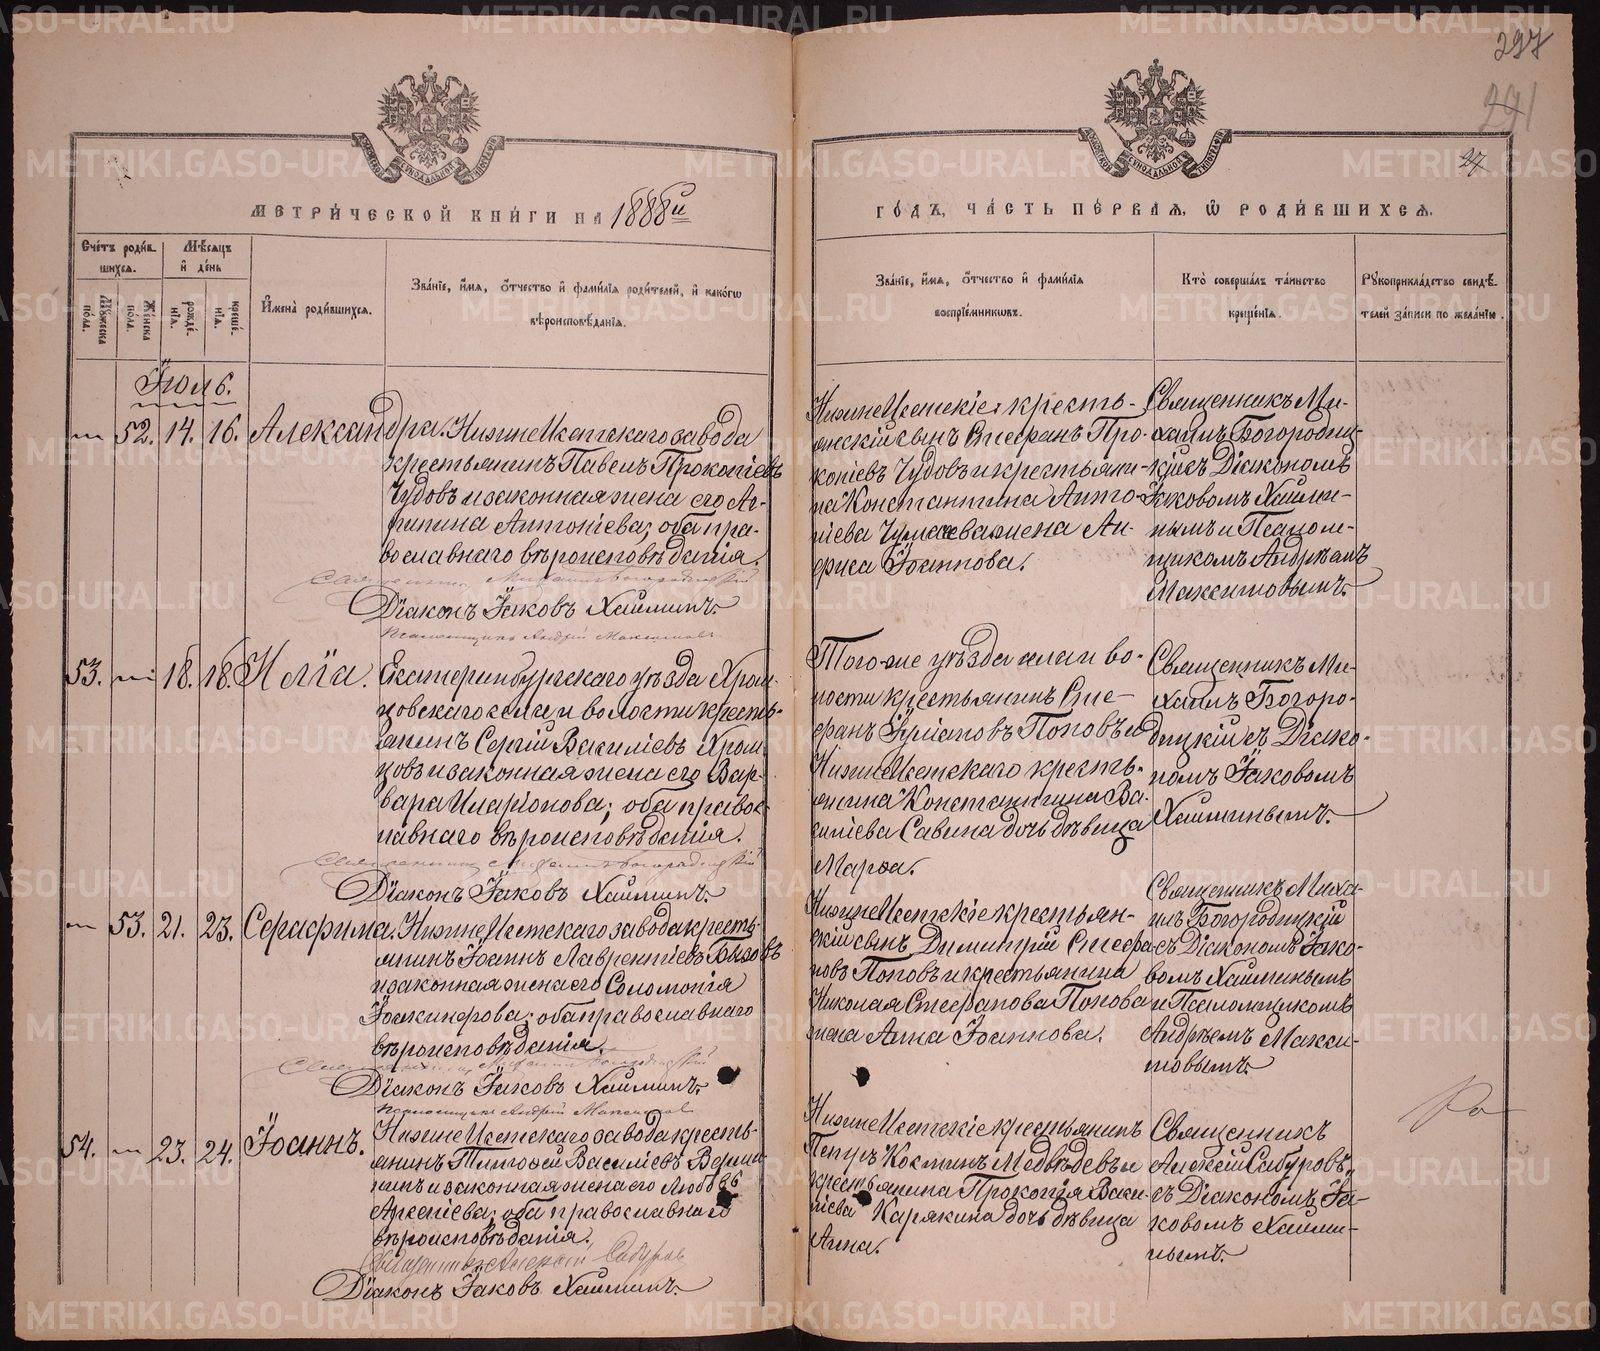 297
291
27
МЕТРИ́ЧЕСКОЙ КНИ́ГИ НА 1888й
ГО́ДЪ, ЧА́СТЬ ПЕ́РВАЯ, Ѡ РОДИ́ВШИХСЯ.
Сче́тъ роди́в-
шихся.
Мѣ́сяцъ
и де́нь
Му́жеска
пола.
Же́нска
пола.
рожде́-
нія.
креще́-
нія.
И́мена роди́вшихся.
Зва́ніе, и́мя, о́тчество и фами́лія роди́телей, и како́гѡ
вѣроисповѣ́данія.
Зва́ніе, и́мя, о́тчество и фами́лія
воспріе́мниковъ.
Кто̀ соверша́лъ та́инство
креще́нія.
Рукоприкла́дство свидѣ́-
телей за́писи по жела́нію.
Іюль.
52. 14. 16. Александра. НижнеИсетскаго завода
крестьянинъ Павелъ Прокопіевъ
Чудовъ и законная жена его Аг-
рипина Антоніева; оба пра-
вославнаго вѣроисповѣданія.
Священникъ Михаилъ Богородицкій
Діаконъ Іаковъ Хаиминъ.
Псаломщикъ Андрей Максимовъ
НижнеИсетскіе: кресть-
янскій сынъ Стефанъ Про-
копіевъ Чудовъ и крестьяни-
на Константина Анто-
ніева жена Ан-
фиса Іоаннова.
Священникъ Ми-
хаилъ Богородиц-
кій съ Діакономъ
Іаковомъ Хаими-
нымъ и Псалом-
щикомъ Андреемъ
Максимовымъ.
53. 18. 18. Илія. Екатеринбургскаго уѣзда Хром-
цовскаго села и волости кресть-
янинъ Сергій Василіевъ Хром-
цовъ и законная жена его Вар-
вара Иларіонова; оба правос-
лавнаго вѣроисповѣданія.
Священникъ Михаилъ Богородицкій
Діаконъ Іаковъ Хаиминъ.
Того-же уѣзда села и во-
лости крестьянинъ Сте-
фанъ Іуліановъ Поповъ и
НижнеИсетскаго кресть-
янина Константина Ва-
силіева Савина дочь дѣвица
Марѳа.
Священникъ Ми-
хаилъ Богоро-
дицкій съ Діако-
номъ Іаковомъ
Хаиминымъ.
53. 21. 23. Серафима. НижнеИсетскаго завода кресть-
янинъ Іоаннъ Лаврентіевъ
и законная жена его Соломонія
оба православнаго
вѣроисповѣданія.
Священникъ Михаилъ Богородицкій
Діаконъ Іаковъ Хаиминъ.
Псаломщикъ Андрей Максимовъ
НижнеИсетскіе крестьян-
скій сынъ Димитрій Стефа-
новъ Поповъ и крестьянина
Николая Стефанова Попова
жена Анна Іоаннова.
Священникъ Миха-
илъ Богородицкій
съ Діакономъ Іако-
вомъ Хаиминымъ
и Псаломщикомъ
Андреемъ Макси-
мовымъ.
54. 23. 24. Іоаннъ. НижнеИсетскаго завода кресть-
янинъ Тимоѳей Василіевъ
и законная жена его Любовь
Арсеніева; оба православнаго
вѣроисповѣданія.
Священникъ Алексій Сабуровъ
Діаконъ Іаковъ Хаиминъ.
НижнеИсетскіе крестьянинъ
Петръ Косминъ Медвѣдевъ и
крестьянина Прокопія Васи-
ліева Карякина дочь дѣвица
Анна.
Священникъ
Алексій Сабуровъ
съ Діакономъ Іа-
ковомъ Хаими-
нымъ.
METRIKI.GASO-URAL.RU